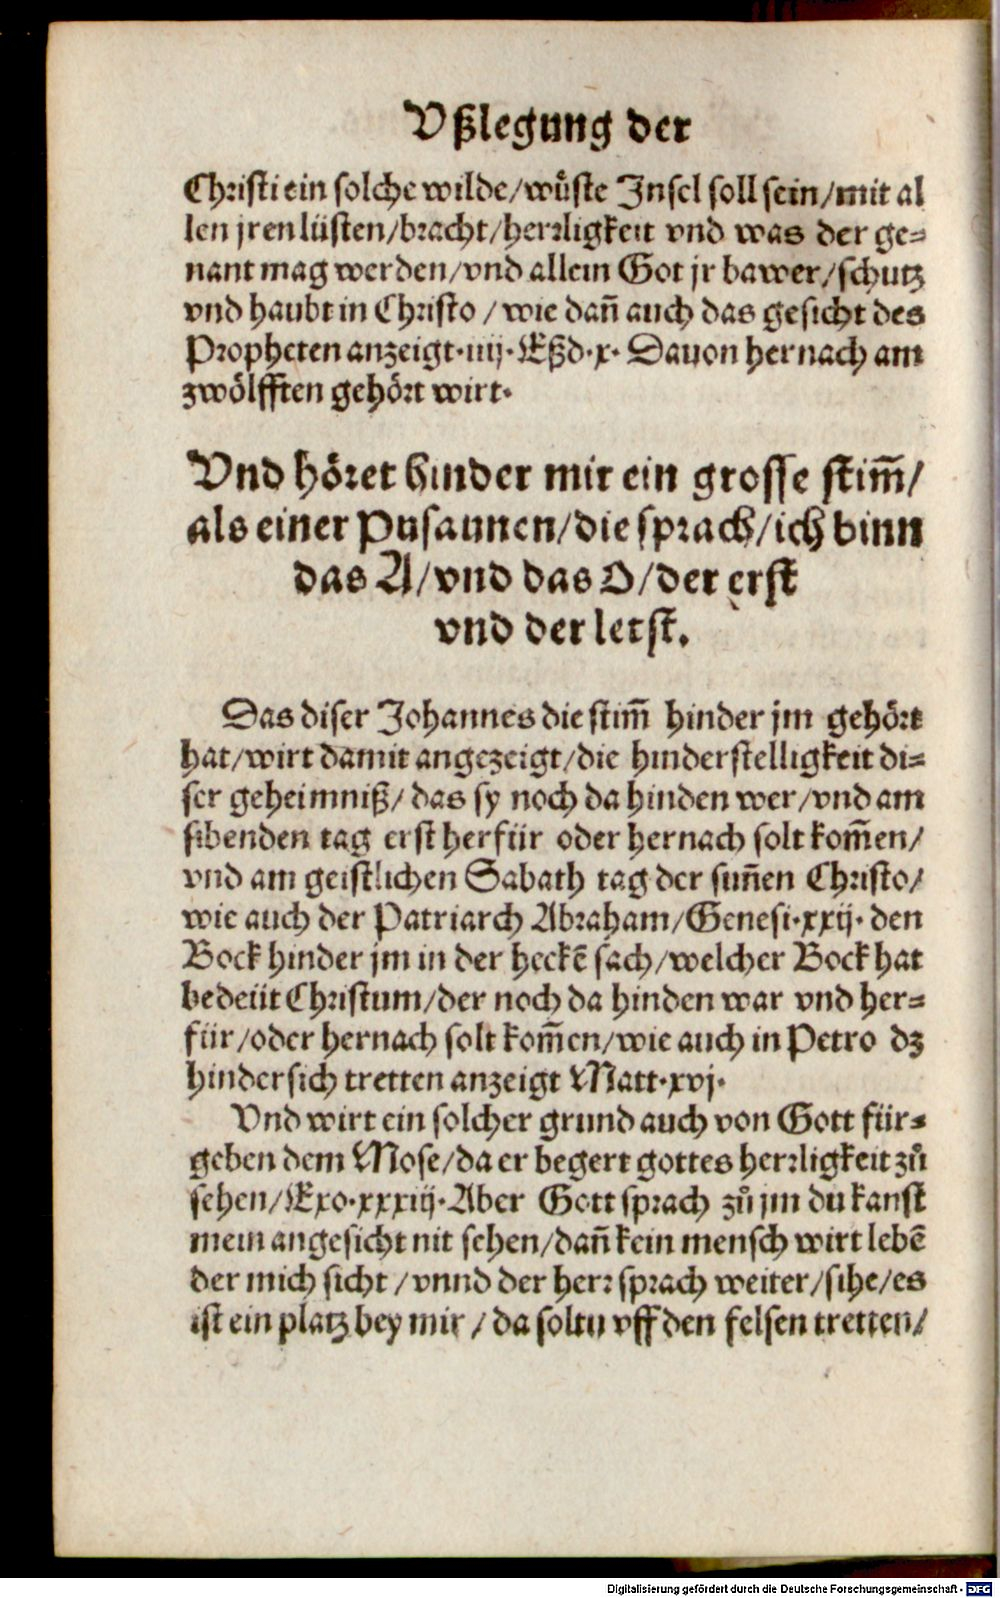 Vßlegung der
Christi ein solche wilde/wuͤste Insel soll sein/mit al
len jren lüsten/bracht/herrligkeit vnd was der ge⸗
nant mag werden/vnd allein Got jr bawer/schutz
vnd haubt in Christo / wie dañ auch das gesicht des
Propheten anzeigt·iiij·Eßd·x· Dauon hernach am
zwölfften gehört wirt·
Vnd höret hinder mir ein grosse stim̃/
als einer Pusaunen/die sprach/ich binn
das A/vnd das O/der erst
vnd der letst.
Das diser Johannes die stim̃ hinder jm gehört
hat/wirt damit angezeigt/die hinderstelligkeit di⸗
ser geheimniß/ das sy noch da hinden wer/vnd am
sibenden tag erst herfür oder hernach solt kom̃en/
vnd am geistlichen Sabath tag der suñen Christo/
wie auch der Patriarch Abraham/Genesi·xxij· den
Bock hinder jm in der heckē sach/welcher Bock hat
bedeüt Christum/der noch da hinden war vnd her⸗
für/oder hernach solt kom̃en/wie auch in Petro dz
hindersich tretten anzeigt Matt·xvj·
Vnd wirt ein solcher grund auch von Gott für⸗
geben dem Mose/da er begert gottes herrligkeit zuͦ
sehen/Exo·xxxiij·Aber Gott sprach zuͦ jm du kanst
mein angesicht nit sehen/dañ kein mensch wirt lebē
der mich sicht /vnnd der herr sprach weiter/sihe/es
ist ein platz bey mir / da soltu vff den felsen tretten/
Digitalisierung gefördert durch die Deutsche Forschungsgemeinschaft - DFG